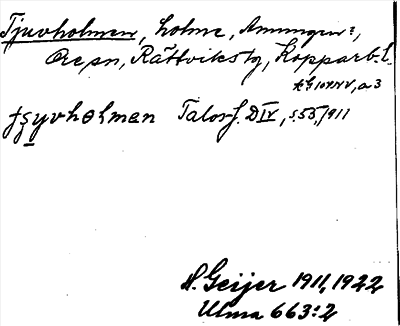 Tjuvholmen, holme, Amungen,
Ore sn, Rättviks tg, Kopparb. l.
a3
Talors f. D IV, s. 55, 1911
H. Geijer 1911, 1922
Ulma 663:2